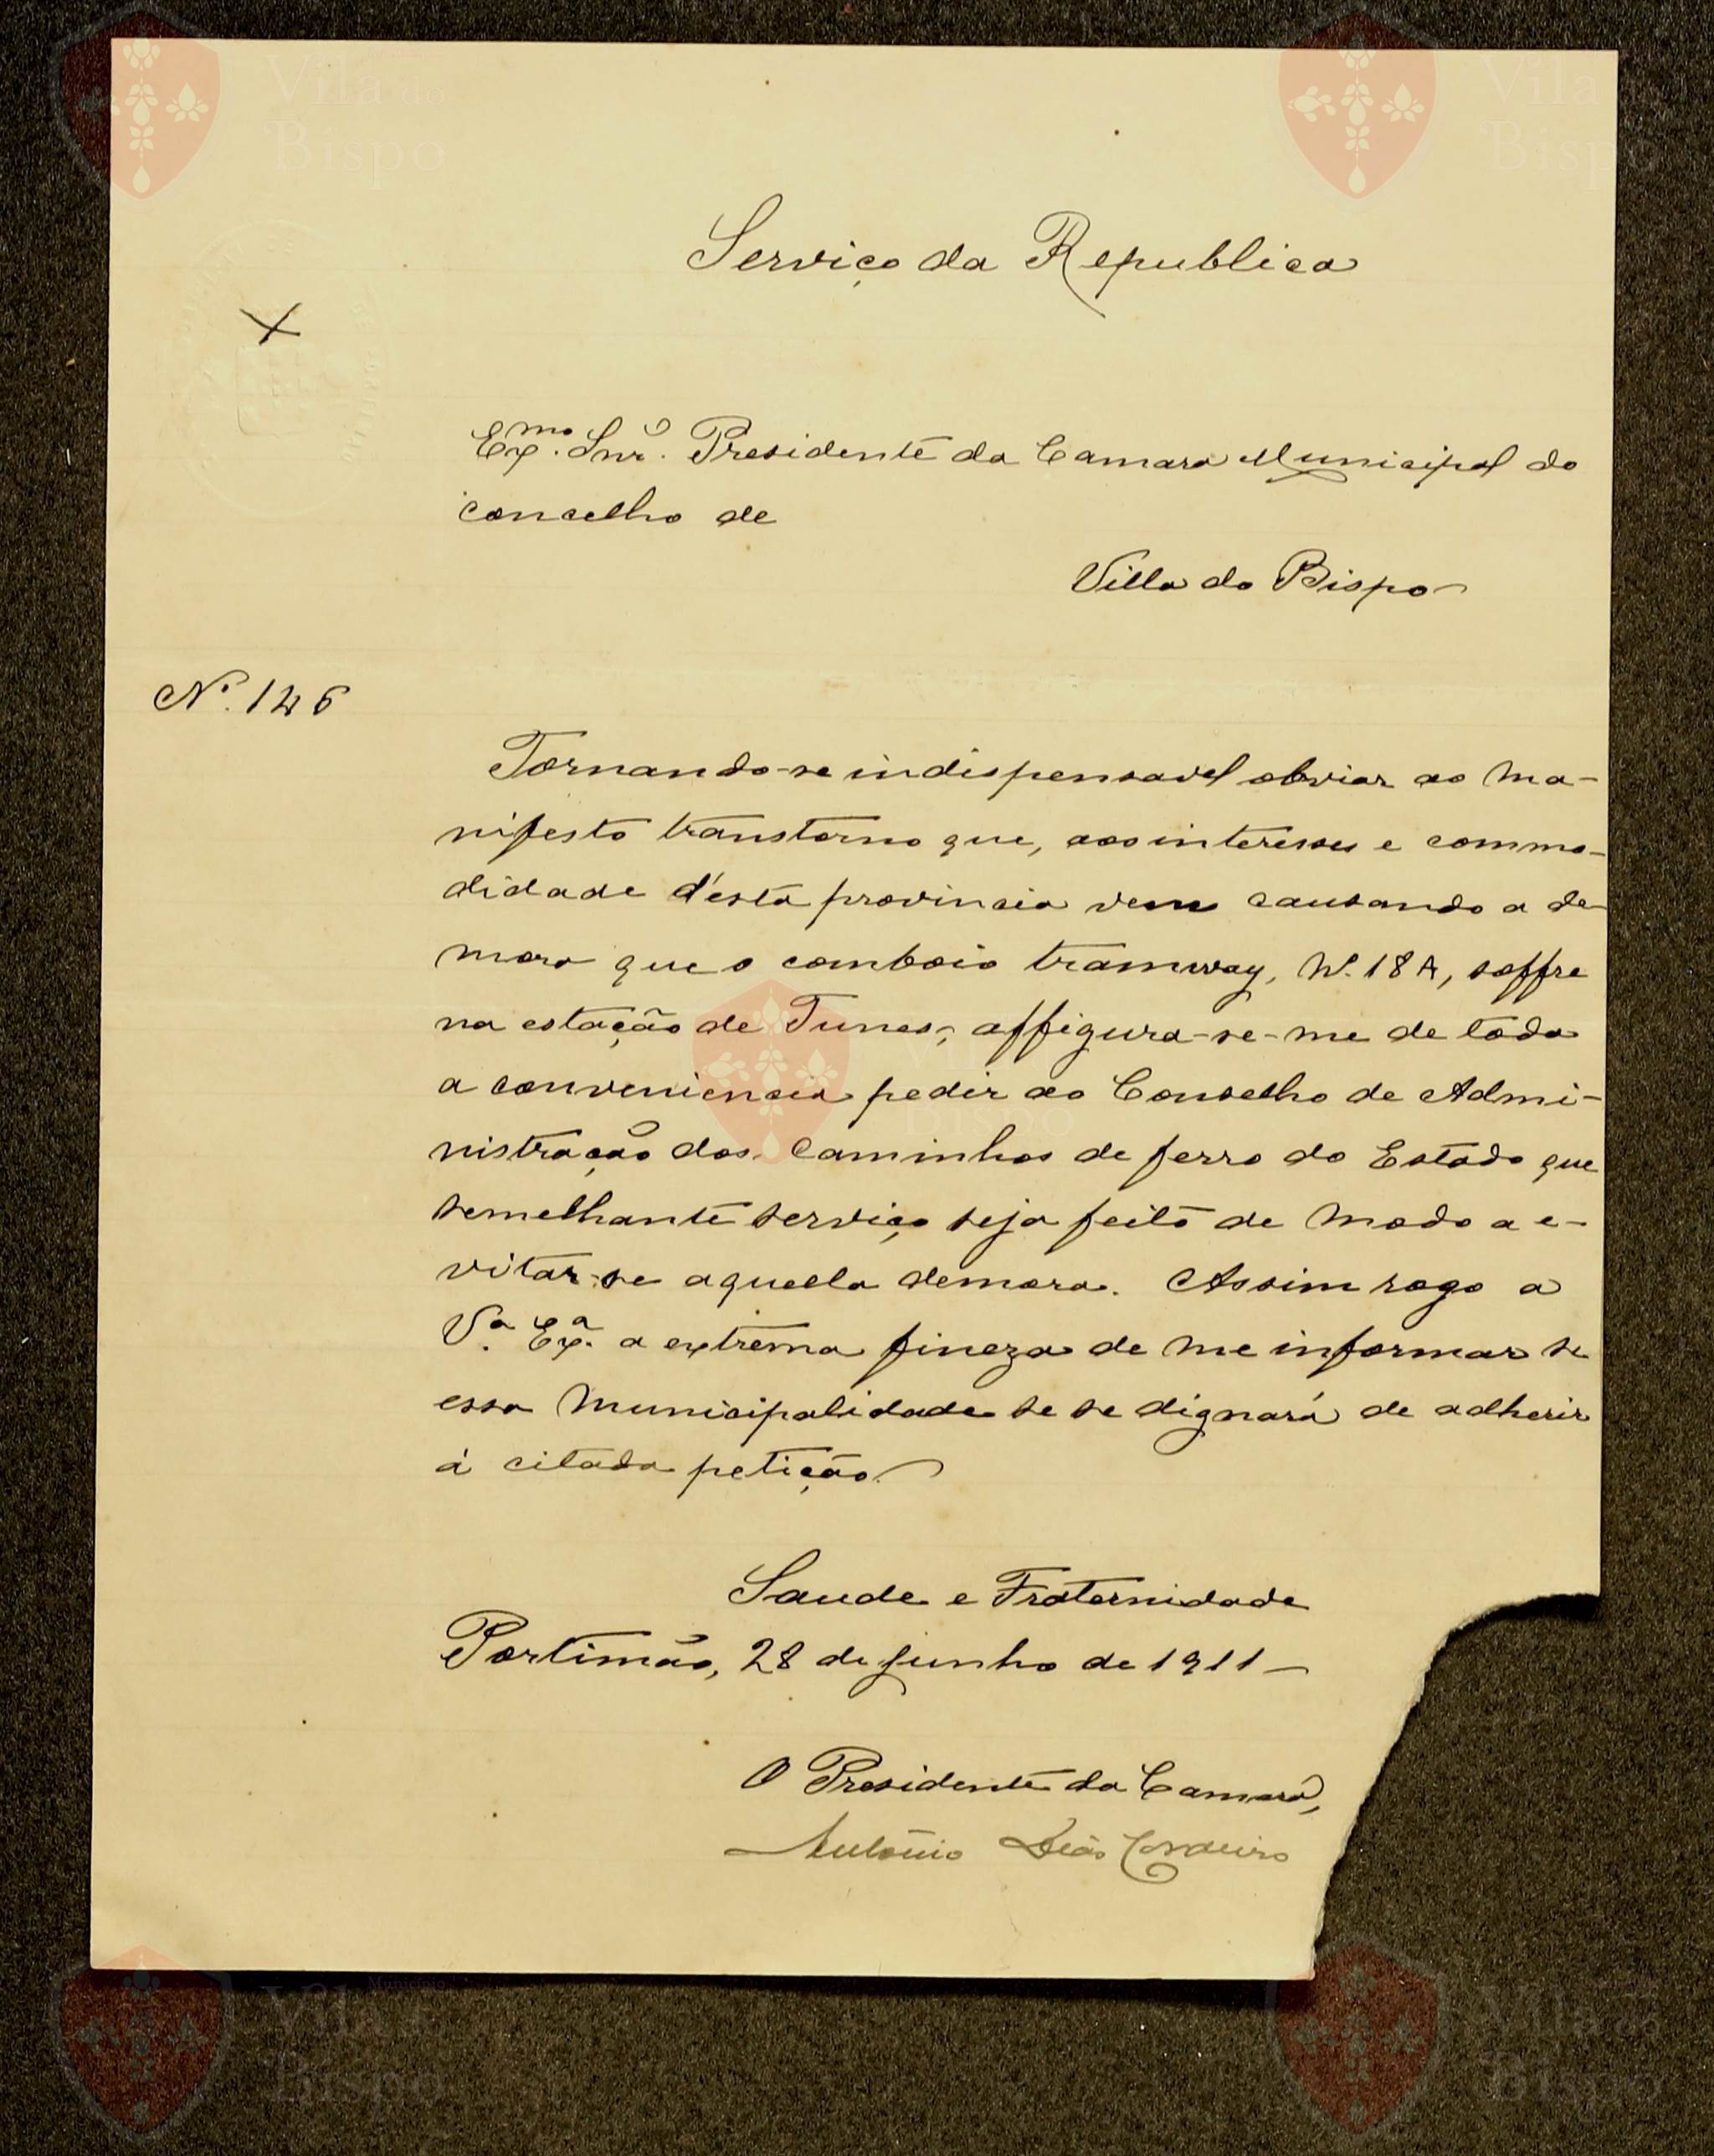 Vila do
Bispo
Vila
Bispo
Serviço da Republica
Exmo. Snr. Presidente da Camara Municipal do
concelho de
Villa do Bispo
N.º 146
Tornando-se indispensavel obviar ao ma-
nifesto transtorno que, aos interesses e commo-
didade d'esta provincia vem causando a de-
mora que o comboio tramway, N.º 18 A, soffre
na estação de Tunes, affigura-se-me de toda
a conveniencia pedir ao Conselho de Admi-
nistração dos Caminhos de ferro do Estado que
semelhante serviço seja feito de modo a e-
vitar-se aquella demora. Assim rogo a
V.ª Ex.ª a extrema fineza de me informar se
essa municipalidade se se dignará de adherir
á citada petição.
Saude e Fraternidade
Portimão, 28 de junho de 1911
O Presidente da Camara,
António Dias Cordeiro
Município
Vila do
Bispo
Vila do
Bispo